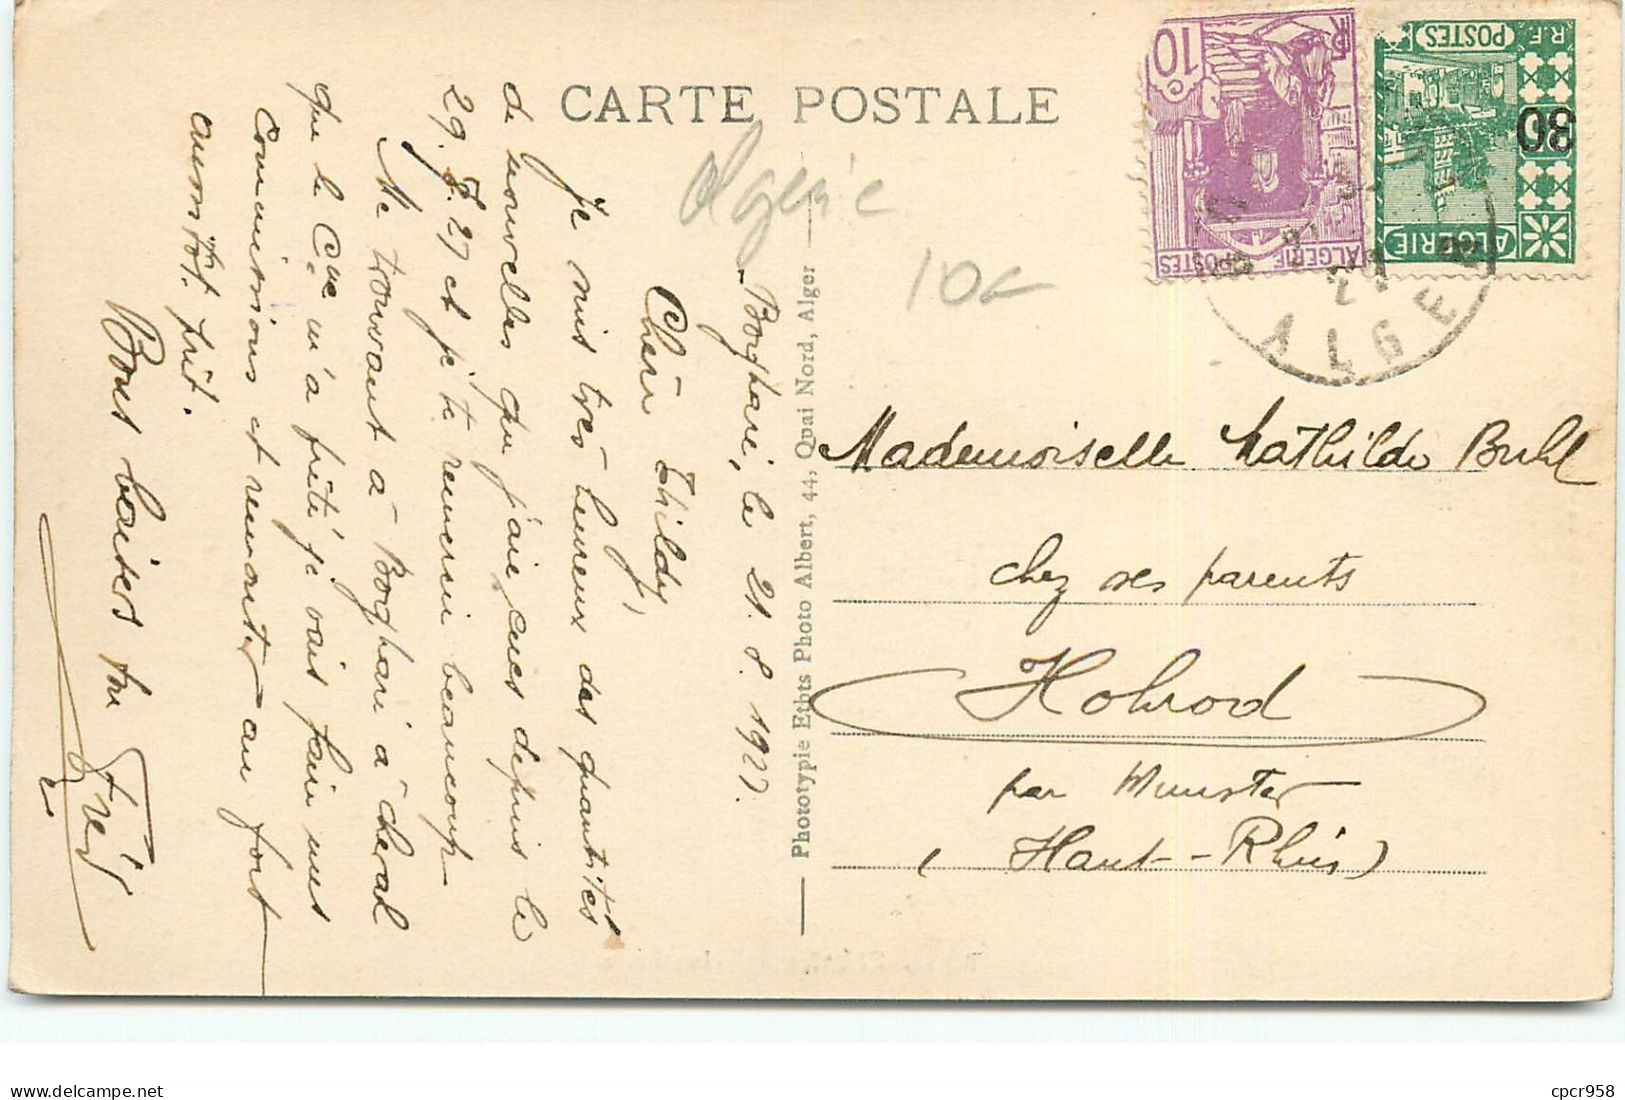 CARTE POSTALE
Algérie
10€
Boghari, le 21.8.1927.
Chère Thildy,
Je suis très heureux des quantités
de nouvelles que j'aie eues depuis le
29.7.27 et je te remercie beaucoup
Me trouvant à Boghari à cheval
que le Cne m'a prêté je vais faire mes
commissions et remonter au fort
aussitôt prêt.
Bons baisers ton Fred
Phototypie Etbts Photo Albert, 44, Quai Nord, Alger
10c
ALGERIE
POSTES
R.F. POSTES
30
ALGERIE
ALGER
Mademoiselle Mathilde Buhl
chez ses parents
Hohrod
par Munster
(Haut-Rhin)
cpcr958